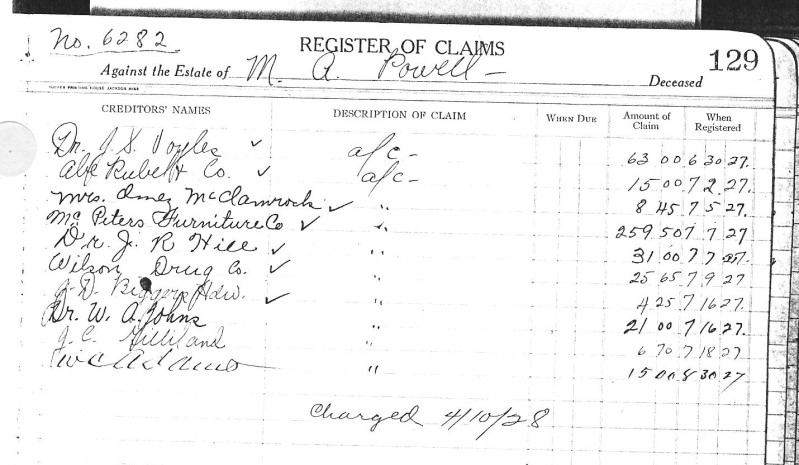 No. 6282
REGISTER OF CLAIMS 129
Against the Estate of M. A. Powell - Deceased
TUCKER PRINTING HOUSE JACKSON MISS
CREDITORS' NAMES DESCRIPTION OF CLAIM WHEN DUE Amount of Claim When Registered
Dr. J. S. Voyles ✓ a/c - 63 00 6 30 27.
Abe Rubel & Co. ✓ a/c - 15 00 7 2. 27.
Mrs. Inez McClamrock ✓ " 8 45 7 5 27
Mc Peters Furniture Co ✓ " 259 50 7 7 27
Dr. J. R Hill ✓ 31 00 7 7 27.
Wilson Drug Co. ✓ " 25 65 7 9 27
J. D. Biggers Hdw. ✓ " 4 25 7 16 27.
Dr. W. A. Johns " 21 00 7 16 27.
J. C. Gilliland " 6 70 7 18 27
W C Adams " 15 00 8 30 27
Charged 4/10/28